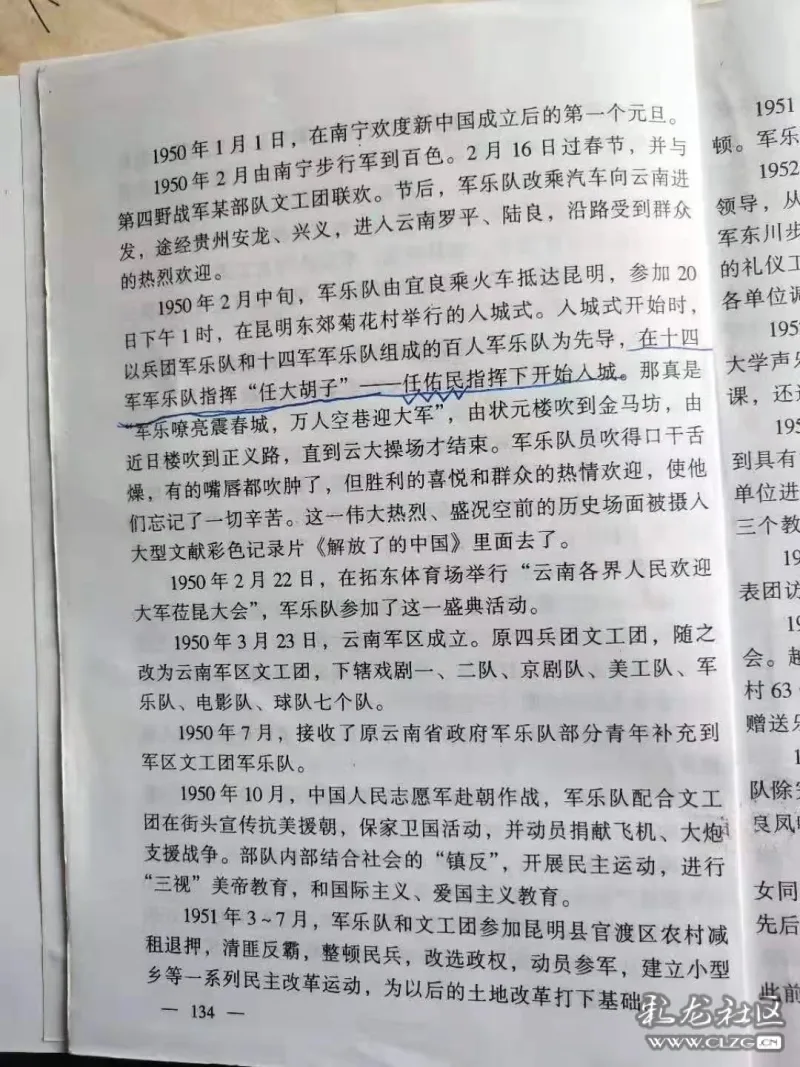 1950年1月1日，在南宁欢度新中国成立后的第一个元旦。
1950年2月由南宁步行军到百色。2月16日过春节，并与
第四野战军某部队文工团联欢。节后，军乐队改乘汽车向云南进
发，途经贵州安龙、兴义，进入云南罗平、陆良，沿路受到群众
的热烈欢迎。
1950年2月中旬，军乐队由宜良乘火车抵达昆明，参加20
日下午1时，在昆明东郊菊花村举行的入城式。入城式开始时，
以兵团军乐队和十四军军乐队组成的百人军乐队为先导，在十四
军军乐队指挥“任大胡子”——任佑民指挥下开始入城。那真是
“军乐嘹亮震春城，万人空巷迎大军”，由状元楼吹到金马坊，由
近日楼吹到正义路，直到云大操场才结束。军乐队员吹得口干舌
燥，有的嘴唇都吹肿了，但胜利的喜悦和群众的热情欢迎，使他
们忘记了一切辛苦。这一伟大热烈、盛况空前的历史场面被摄入
大型文献彩色记录片《解放了的中国》里面去了。
1950年2月22日，在拓东体育场举行“云南各界人民欢迎
大军莅昆大会”，军乐队参加了这一盛典活动。
1950年3月23日，云南军区成立。原四兵团文工团，随之
改为云南军区文工团，下辖戏剧一、二队、京剧队、美工队、军
乐队、电影队、球队七个队。
1950年7月，接收了原云南省政府军乐队部分青年补充到
军区文工团军乐队。
1950年10月，中国人民志愿军赴朝作战，军乐队配合文工
团在街头宣传抗美援朝，保家卫国活动，并动员捐献飞机、大炮
支援战争。部队内部结合社会的“镇反”，开展民主运动，进行
“三视”美帝教育，和国际主义、爱国主义教育。
1951年3~7月，军乐队和文工团参加昆明县官渡区农村减
租退押，清匪反霸，整顿民兵，改选政权，动员参军，建立小型
乡等一系列民主改革运动，为以后的土地改革打下基础
— 134 —
1951
顿。军乐
1952
领导，从
军东川步
的礼仪工
各单位调
195
大学声乐
课，还
195
到具有
单位进
三个教
19
表团访
19
会。越
村63
赠送乐
1
队除
良凤
女同
先后
此前
彩龙社区
WWW.CLZG.CN